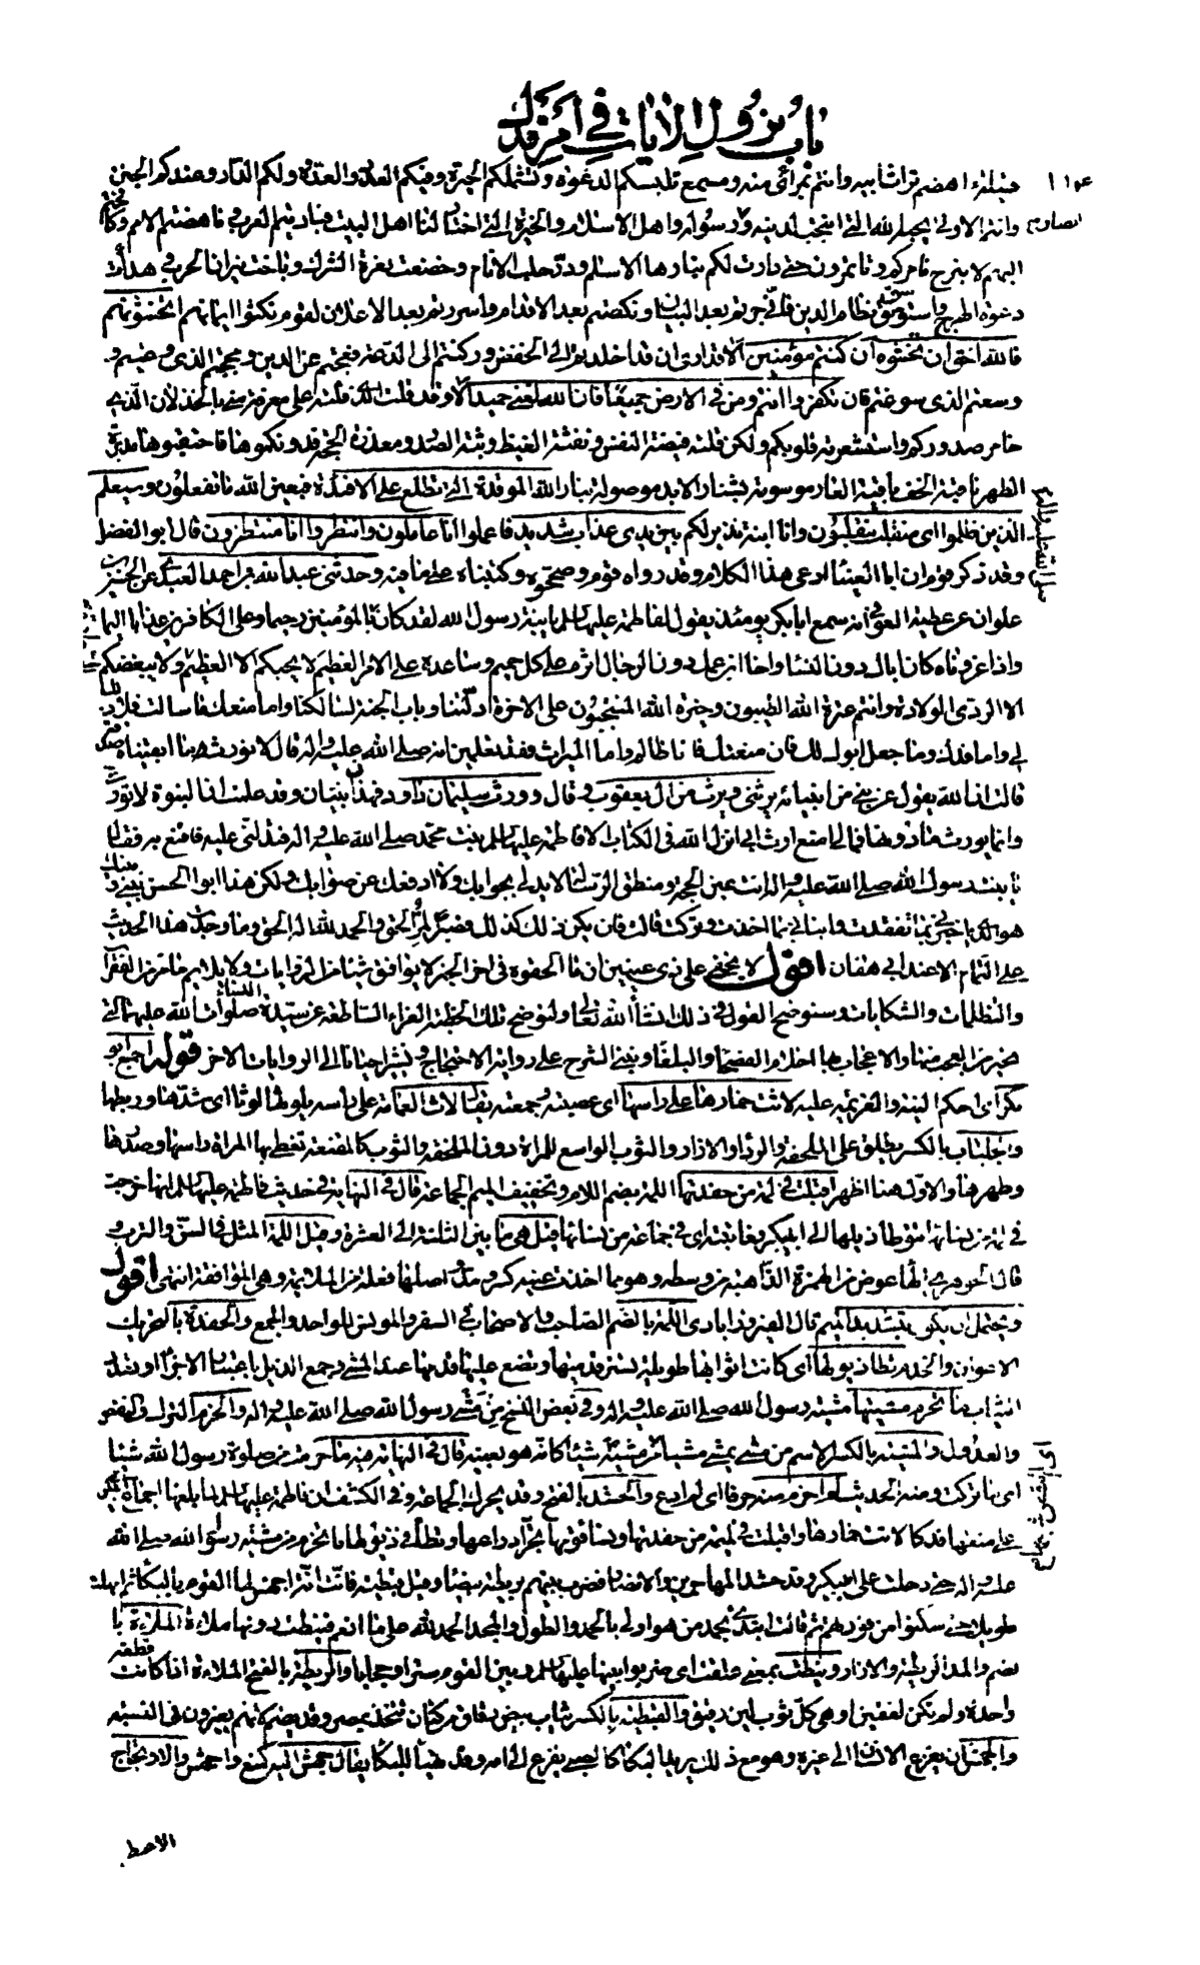 باب نزول الآيات في أمر فدك
قيلة أهضم تراث أبيه وأنتم بمرأى منه ومسمع تلبسكم الدعوة وتشملكم الحيرة وفيكم العدد والعدة ولكم الدار وعندكم الجنن
وأنتم الأولى نخبة الله التي انتجب لدينه ورسوله وأهل الإسلام والخيرة التي اختار لنا أهل البيت فباديتم العرب وناهضتم الأمم وكافحتم
البهم لا نبرح نأمركم وتأتمرون حتى دارت لكم بنا رحا الإسلام ودر حلب الأنام وخضعت نعرة الشرك وباخت نيران الحرب وهدأت
دعوة الهرج واستوسق نظام الدين فأنى جرتم بعد البيان ونكصتم بعد الإقدام وأسررتم بعد الإعلان لقوم نكثوا أيمانهم أتخشونهم
فالله أحق أن تخشوه إن كنتم مؤمنين ألا قد أرى أن قد أخلدتم إلى الخفض وركنتم إلى الدعة فعجتم عن الدين ومججتم الذي وعيتم و
دسعتم الذي سوغتم فإن تكفروا أنتم ومن في الأرض جميعا فإن الله لغني حميد ألا وقد قلت الذي قلته على معرفة مني بالخذلان الذي
خامر صدوركم واستشعرته قلوبكم ولكن قلته فيضة النفس ونفثة الغيظ وبثة الصدر ومعذرة الحجة فدونكموها فاحتقبوها مدبرة
الظهر ناقبة الخف باقية العار موسومة بشنار الأبد موصولة بنار الله الموقدة التي تطلع على الأفئدة فبعين الله ما تفعلون وسيعلم
الذين ظلموا أي منقلب ينقلبون وأنا ابنة نذير لكم بين يدي عذاب شديد فاعملوا إنا عاملون وانتظروا إنا منتظرون قال أبو الفضل
وقد ذكر قوم أن أبا العيناء ادعى هذا الكلام وقد رواه قوم وصححوه وكتبناه على ما فيه وحدثني عبد الله بن أحمد العبدي عن الحسين بن
علوان عن عطية العوفي أنه سمع أبا بكر يومئذ يقول لفاطمة عليها السلام يا ابنة رسول الله لقد كان بالمؤمنين رحيما وعلى الكافرين عذابا أليما
وإذا عزوناه كان أباك دون النساء وأخا ابن عمك دون الرجال آثره على كل حميم وساعده على الأمر العظيم لا يحبكم إلا العظيم ولا يبغضكم
إلا الردي الولادة وأنتم عترة الله الطيبون وخيرة الله المنتجبون على الآخرة أدلتنا وباب الجنة لسالكنا وأما منعك ما سألت فلا ذلك
لي وأما فدك وما جعل أبوك لك فإن منعتك فأنا ظالم وأما الميراث فقد تعلمين أنه صلى الله عليه وآله قال لا نورث ما أبقيناه صدقة
قالت إن الله يقول عن نبي من أنبيائه يرثني ويرث من آل يعقوب وقال وورث سليمان داود فهذان نبيان وقد علمت أن النبوة لا تورث
وإنما يورث ما دونها فما لي أمنع إرث أبي أأنزل الله في الكتاب إلا فاطمة عليها السلام بنت محمد صلى الله عليه وآله فتدلني عليه فأقنع به فقال
يا بنت رسول الله صلى الله عليه وآله أنت عين الحجة ومنطق الرسالة لا يد لي بجوابك ولا أدفعك عن صوابك ولكن هذا أبو الحسن بيني وبينك
هو الذي أخبرني بما تفقدت وأنبأني بما أخذت وتركت قالت فإن يكن ذلك كذلك فصبرا لمر الحق والحمد لله إله الحق وما وجدت هذا الحديث
على التمام إلا عند أبي هفان أقول لا يخفى على ذي عينين أن ما ألحقوه في آخر الخبر لا يوافق شيئا من الروايات ولا يلائم ما مر من الفقرات
والتظلمات والشكايات وسنوضح القول في ذلك إنشاء الله تعالى ولنوضح تلك الخطبة الغراء الساطعة عن سيدة النساء صلوات الله عليها التي
تحير من العجب منها والإعجاب بها أحلام الفصحاء والبلغاء ونبني الشرح على رواية الاحتجاج ونشير أحيانا إلى الروايات الأخر قوله أجمع أبو
بكر أي أحكم النية والعزيمة عليه لاثت خمارها على رأسها أي عصبته وجمعته يقال لاث العمامة على رأسه يلوثها لوثا أي شدها وربطها
والجلباب بالكسر يطلق على الملحفة والرداء والإزار والثوب الواسع للمرأة دون الملحفة والثوب كالمقنعة تغطي بها المرأة رأسها وصدرها
وظهرها والأول هنا أظهر أقبلت في لمة من حفدتها اللمة بضم اللام وتخفيف الميم الجماعة قال في النهاية في حديث فاطمة عليها السلام إنها خرجت
في لمة من نسائها تتوطأ ذيلها إلى أبي بكر فعاتبته أي في جماعة من نسائها قيل هي ما بين الثلاثة إلى العشرة وقيل اللمة المثل في السن والترب و
قال الجوهري الهاء عوض من الهمزة الذاهبة من وسطه وهو مما أخذت عينه كسه ومذ أصلها فعلة من الملائمة وهي الموافقة انتهى أقول
ويحتمل أن يكون بتشديد الميم قال الفيروزآبادي اللمة بالضم الصاحب والأصحاب في السفر والمونس للواحد والجمع والحفدة بالتحريك
الأعوان والخدم تطأ ذيولها أي كانت أثوابها طويلة تستر قدميها وتضع عليها قدمها عند المشي وجمع الذيل باعتبار الأجزاء أو تعدد
الثياب ما تخرم مشيتها مشية رسول الله صلى الله عليه وآله وفي بعض النسخ من مشي رسول الله صلى الله عليه وآله والخرم الترك والنقص
والعدول والمشية بالكسر الاسم من مشى يمشي مشيا أي لم تنقص مشيته شيئا كأنه هو بعينه قال في النهاية فيه ما خرمت من صلوة رسول الله شيئا
أي ما تركت ومنه الحديث لم أخرم منه حرفا أي لم أدع والحشد بالفتح وقد يحرك الجماعة وفي الكشف أن فاطمة عليها السلام لما بلغها إجماع أبي بكر
على منعها فدكا لاثت خمارها وأقبلت في لميمة من حفدتها ونساء قومها تجر أدراعها وتطأ في ذيولها ما تخرم من مشية رسول الله صلى الله
عليه وآله حتى دخلت على أبي بكر وقد حشد المهاجرين والأنصار فضرب بينهم بريطة بيضاء وقيل قبطية فأنت أنة أجهش لها القوم بالبكاء ثم أمهلت
طويلا حتى سكنوا من فورتهم ثم قالت أبتدئ بحمد من هو أولى بالحمد والطول والمجد الحمد لله على ما أنعم فنيطت دونها ملاءة الملاءة با
لضم والمد الريطة والإزار ونيطت بمعنى علقت أي ضربوا بينها عليها السلام وبين القوم سترا وحجابا والريطة بالفتح الملاءة إذا كانت قطعة
واحدة ولم تكن لفقين أو هي كل ثوب لين رقيق والقبطية بالكسر ثياب بيض رقاق من كتان تتخذ بمصر وقد يضم لأنهم يغيرون في النسبة
والجهش أن يفزع الإنسان إلى غيره وهو مع ذلك يريد البكاء كالصبي يفزع إلى أمه وقد تهيأ للبكاء يقال جهش إليه كمنع وأجهش والارتجاج
الاضطراب